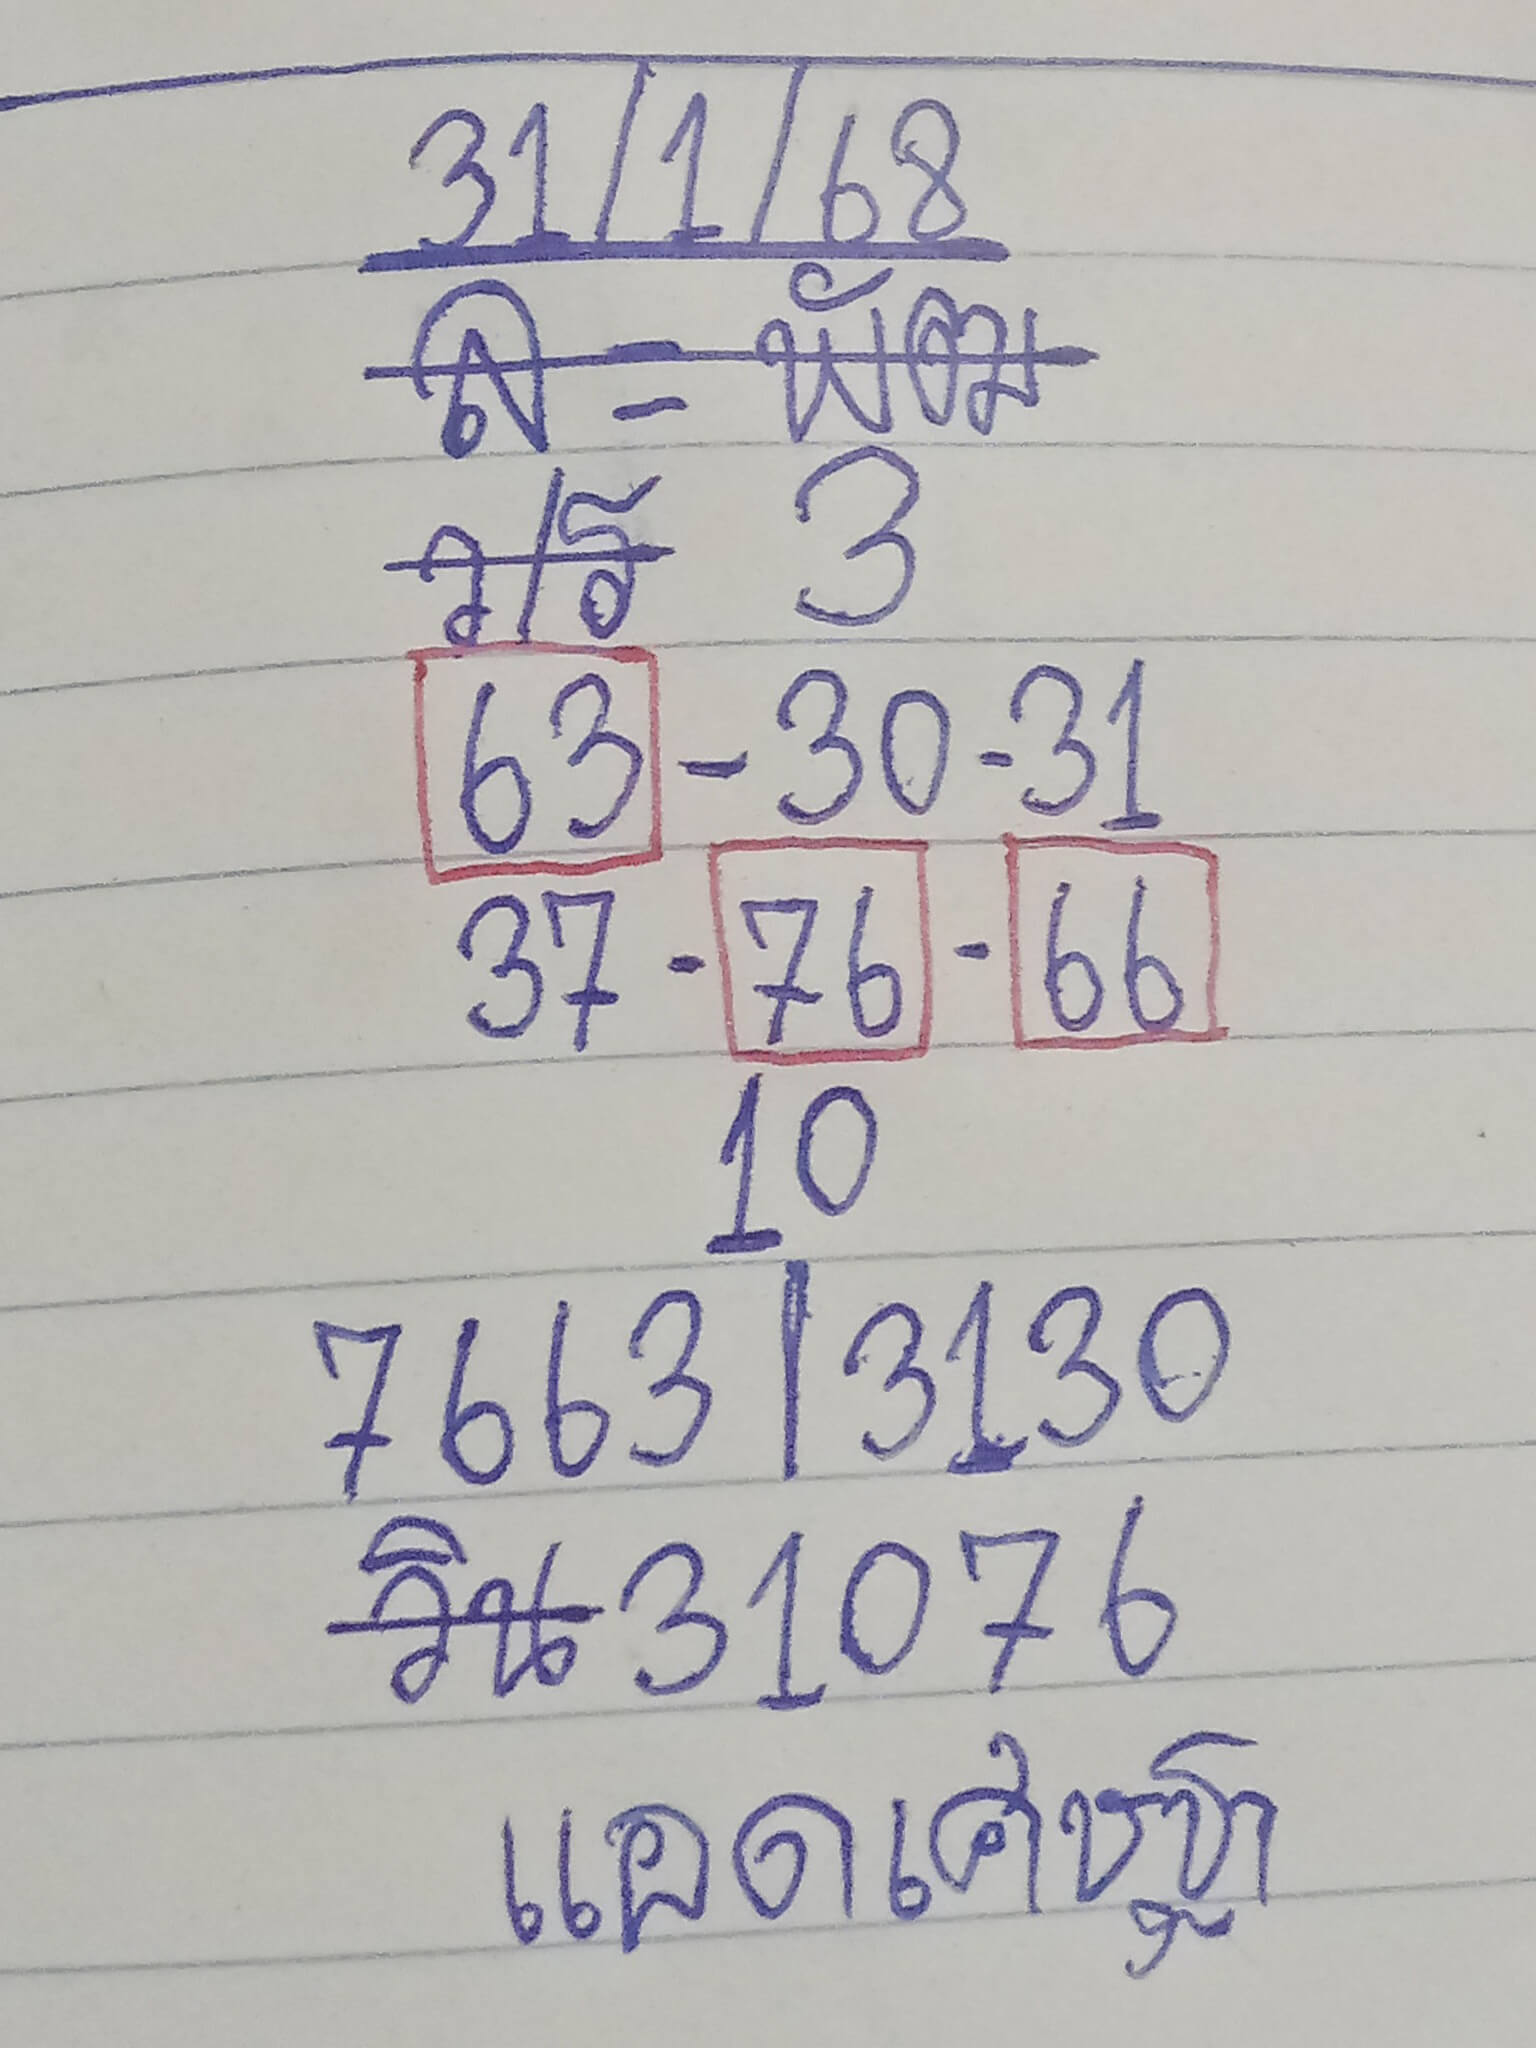 31/1/68
ล = พังงม
ว/ร 3
63 - 30 - 31
37 - 76 - 66
10
7663 | 3130
วิน 31076
แอดเศษฐี